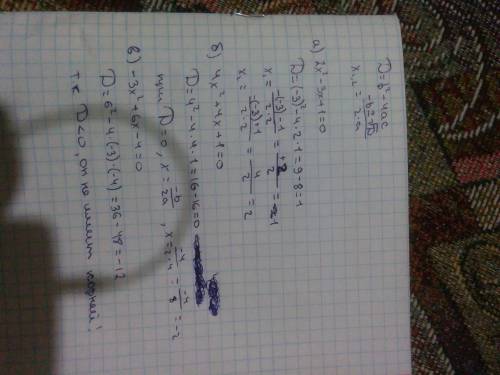 D=b²-4ac
x₁,₂ = -b±√D / 2·a
а) 2x²-3x+1=0
D=(-3)²-4·2·1=9-8=1
x₁ = -(-3)-1 / 2·2 = +2 / 2 = 1
x₂ = -(-3)+1 / 2·2 = 4 / 2 = 2
б) 4x²+4x+1=0
D=4²-4·4·1=16-16=0
при D=0, x = -b / 2a , x = -4 / 2·4 = -4 / 8 = -2
в) -3x²+6x-4=0
D=6²-4·(-3)·(-4)=36-48=-12
т.к D<0, он не имеет корней!